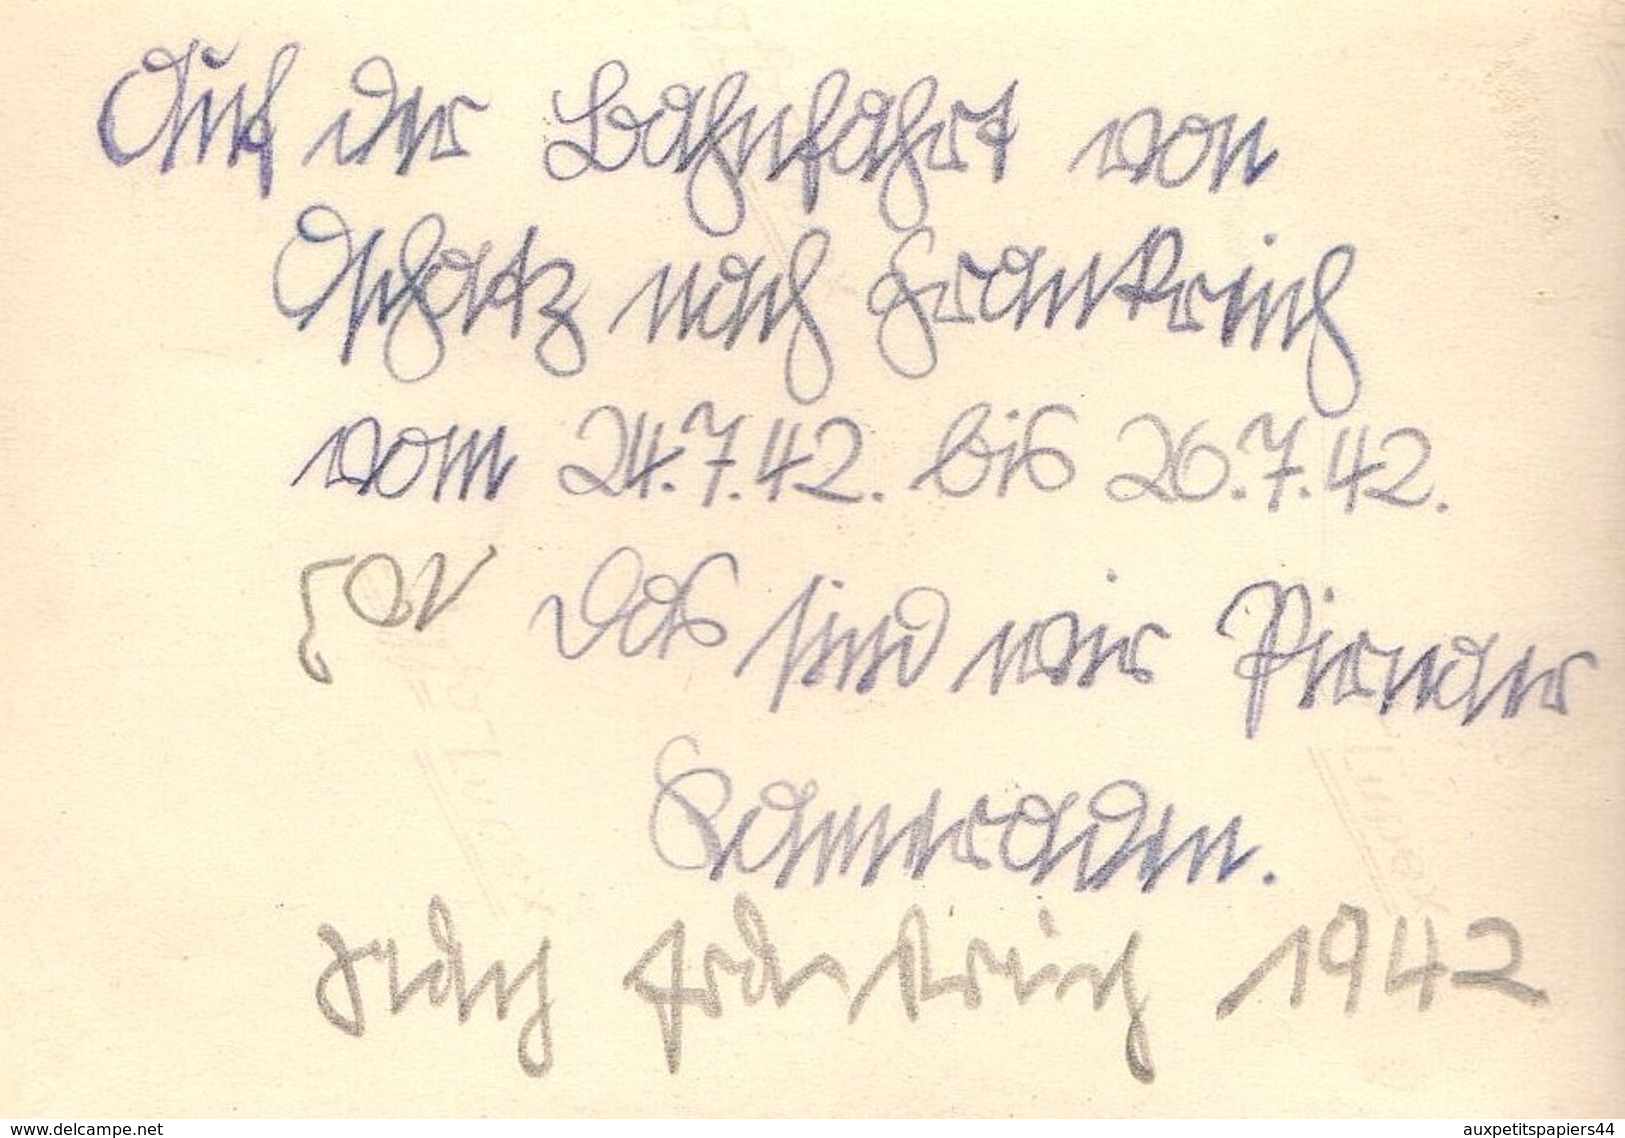 Auf der Bahnfahrt von
Oschatz nach Frankreich
vom 24.7.42. bis 26.7.42.
Das sind wir Pirnaer
Kameraden.
Nach Frankreich 1942
www.delcampe.net
auxpetitspapiers44